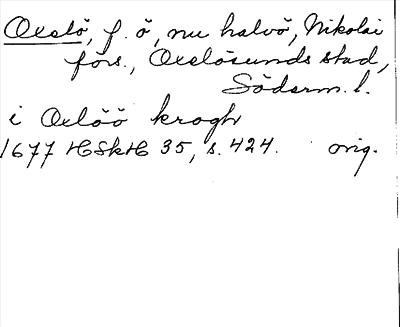 Oxelö, f. ö, nu halvö, Nikolai
förs., Oxelösunds stad,
Söderm. l.
i Oxlöö krogh
1677 HSkH 35, s. 424. orig.